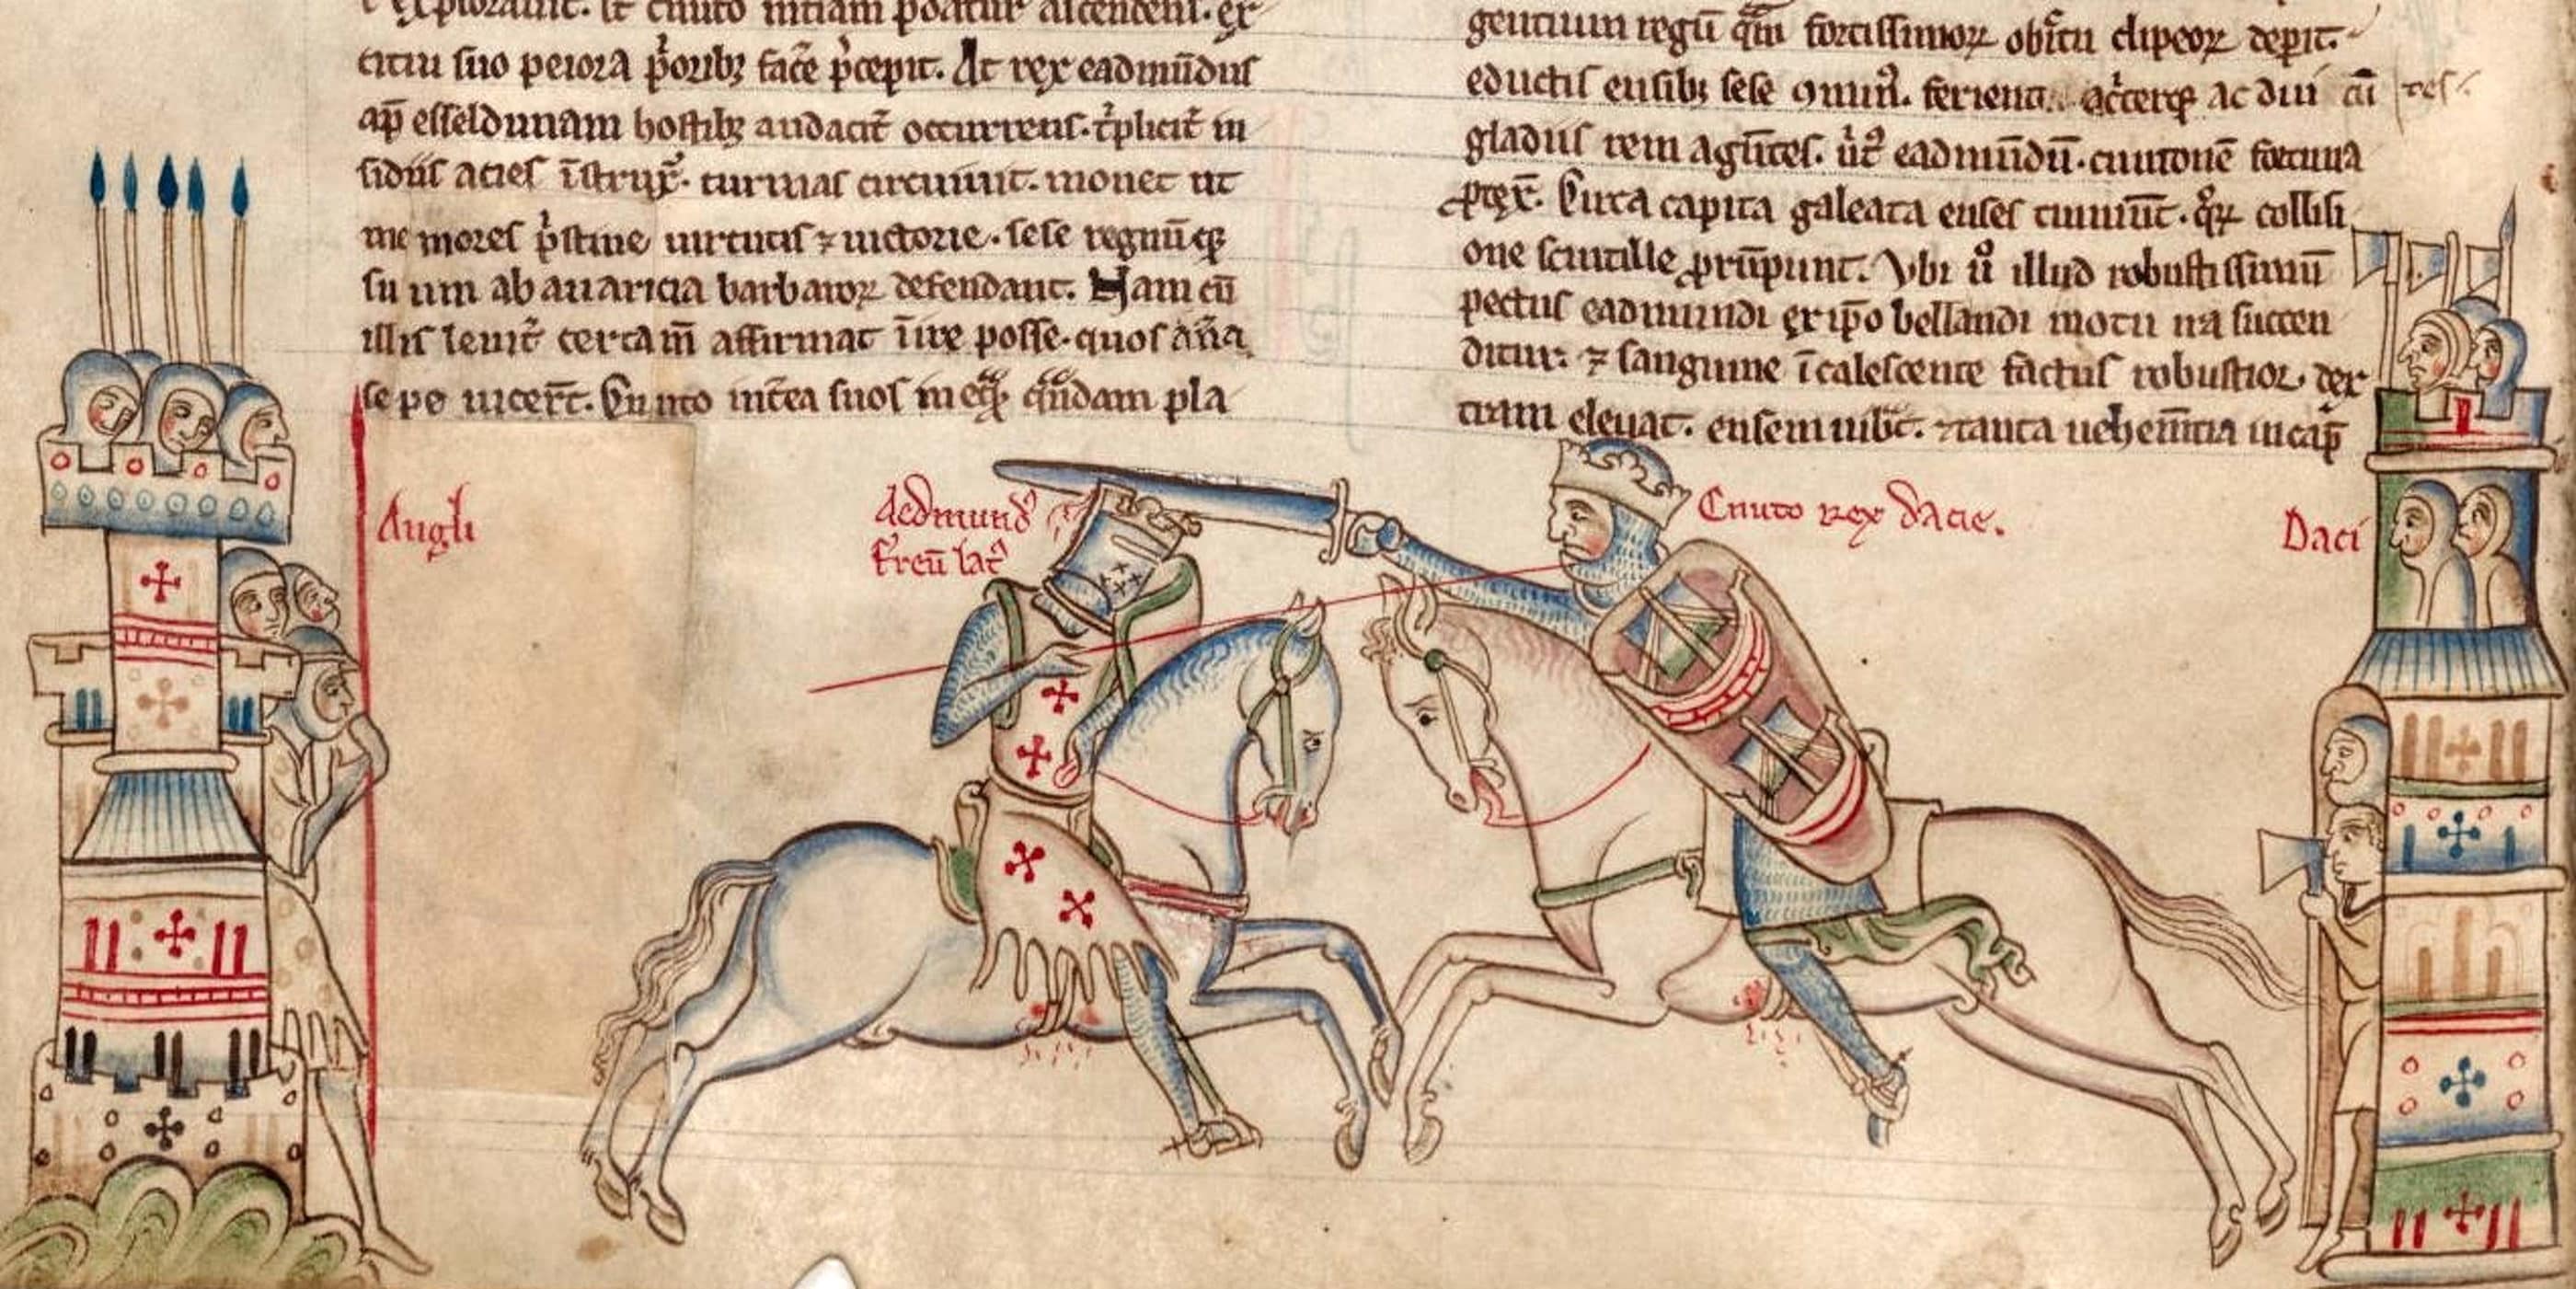 citiu suo peiora p'orib; fac̄e p'cepit. At rex eadmūdus
ap̄ esseldunam hostib; audacit̄ occurrens. t'plicit̄ in
sidiis acies īstrux̄. turmas circuiuit. monet ut
me mores p'stine uirtutis ⁊ uictorie. sese regnūq;
su um ab auaricia barbaroꝝ defendant. Nam cū
illis leuit̄ certam̄ affirmat īire posse. quos
se pe uicer̄t. Cnuto int̄ea suos in pla
gentium regū fortissimoꝝ clipeoꝝ
eductis ensib; sese ac diu cū tes
gladiis rem agūtes. eadmūdū. cnutonē fortuna
Circa capita galeata enses tinniūt. collisi
one scintille ꝓrūpunt. Vbi u° illud robustissimū
pectus eadmundi ex ip̄o bellandi motu succen
ditur. ⁊ sanguine īcalescente factus robustior. dex
tram eleuat. ensem uib̄t. ⁊ tanta uehem̄tia in cap̄
Angli
Aedmund᷒
ferrū lat᷒
Cnuto rex dacie.
Daci